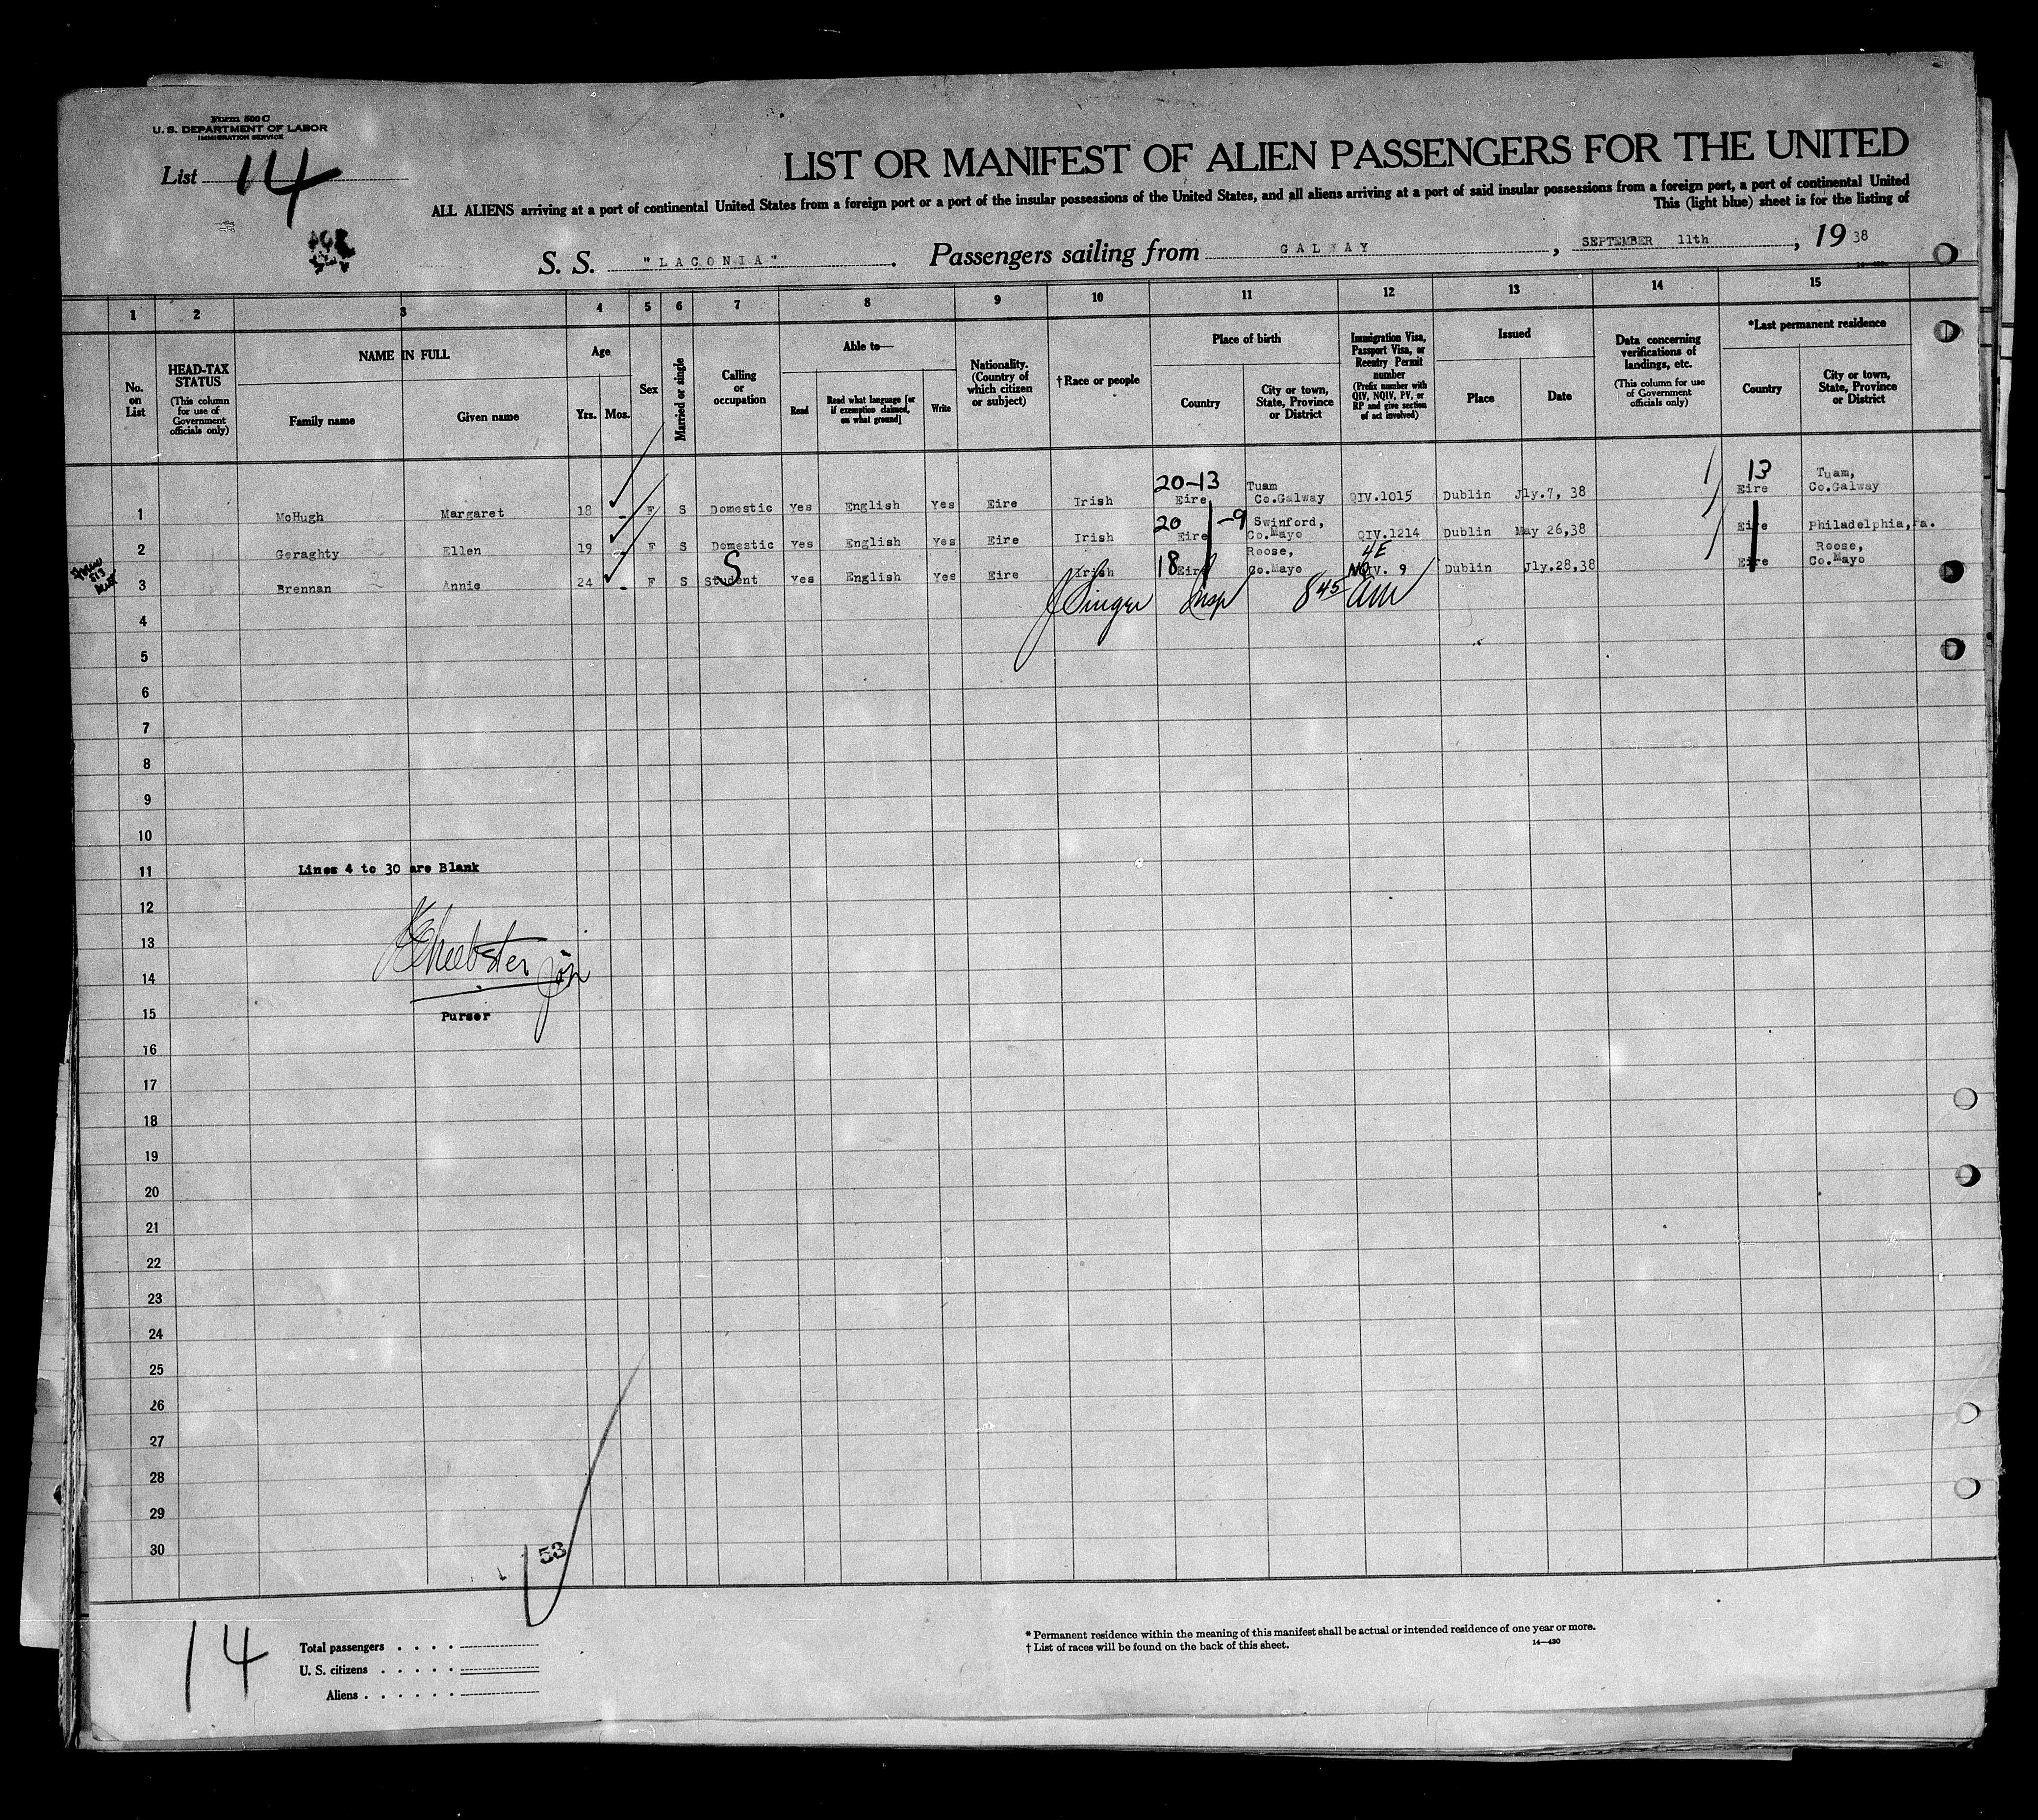 Form 500 C
U. S. DEPARTMENT OF LABOR
IMMIGRATION SERVICE
List 14
LIST OR MANIFEST OF ALIEN PASSENGERS FOR THE UNITED
ALL ALIENS arriving at a port of continental United States from a foreign port or a port of the insular possessions of the United States, and all aliens arriving at a port of said insular possessions from a foreign port, a port of continental United
This (light blue) sheet is for the listing of
S. S. "LACONIA". Passengers sailing from GALWAY, SEPTEMBER 11th, 1938
1 2 3 4 5 6 7 8 9 10 11 12 13 14 15
No. on List
HEAD-TAX STATUS
(This column for use of Government officials only)
NAME IN FULL
Family name
Given name
Age
Yrs. Mos.
Sex
Married or single
Calling or occupation
Able to—
Read
Read what language [or if exemption claimed, on what ground]
Write
Nationality. (Country of which citizen or subject)
†Race or people
Place of birth
Country
City or town, State, Province or District
Immigration Visa, Passport Visa, or Reentry Permit number
(Prefix number with QIV, NQIV, PV, or RP and give section of act involved)
Issued
Place
Date
Data concerning verifications of landings, etc.
(This column for use of Government officials only)
*Last permanent residence
Country
City or town, State, Province or District
20-13 13
1 McHugh Margaret 18 - F S Domestic Yes English Yes Eire Irish Eire Tuam Co.Galway QIV.1015 Dublin Jly.7, 38 Eire Tuam, Co.Galway
20 -9
2 Geraghty Ellen 19 - F S Domestic Yes English Yes Eire Irish Eire Swinford, Co.Mayo QIV.1214 Dublin May 26,38 Eire Philadelphia,Pa.
18 S 4E
3 Brennan Annie 24 - F S Student Yes English Yes Eire Irish Eire Roose, Co.Mayo NQIV. 9 Dublin Jly.28,38 Eire Roose, Co.Mayo
J Singer Insp 8 45 am
4
5
6
7
8
9
10
11 Lines 4 to 30 are Blank
12
13
14
15 Purser
16
17
18
19
20
21
22
23
24
25
26
27
28
29
30
53
14
Total passengers . . . .
U. S. citizens . . . . .
Aliens . . . . . .
* Permanent residence within the meaning of this manifest shall be actual or intended residence of one year or more.
† List of races will be found on the back of this sheet.
14—430